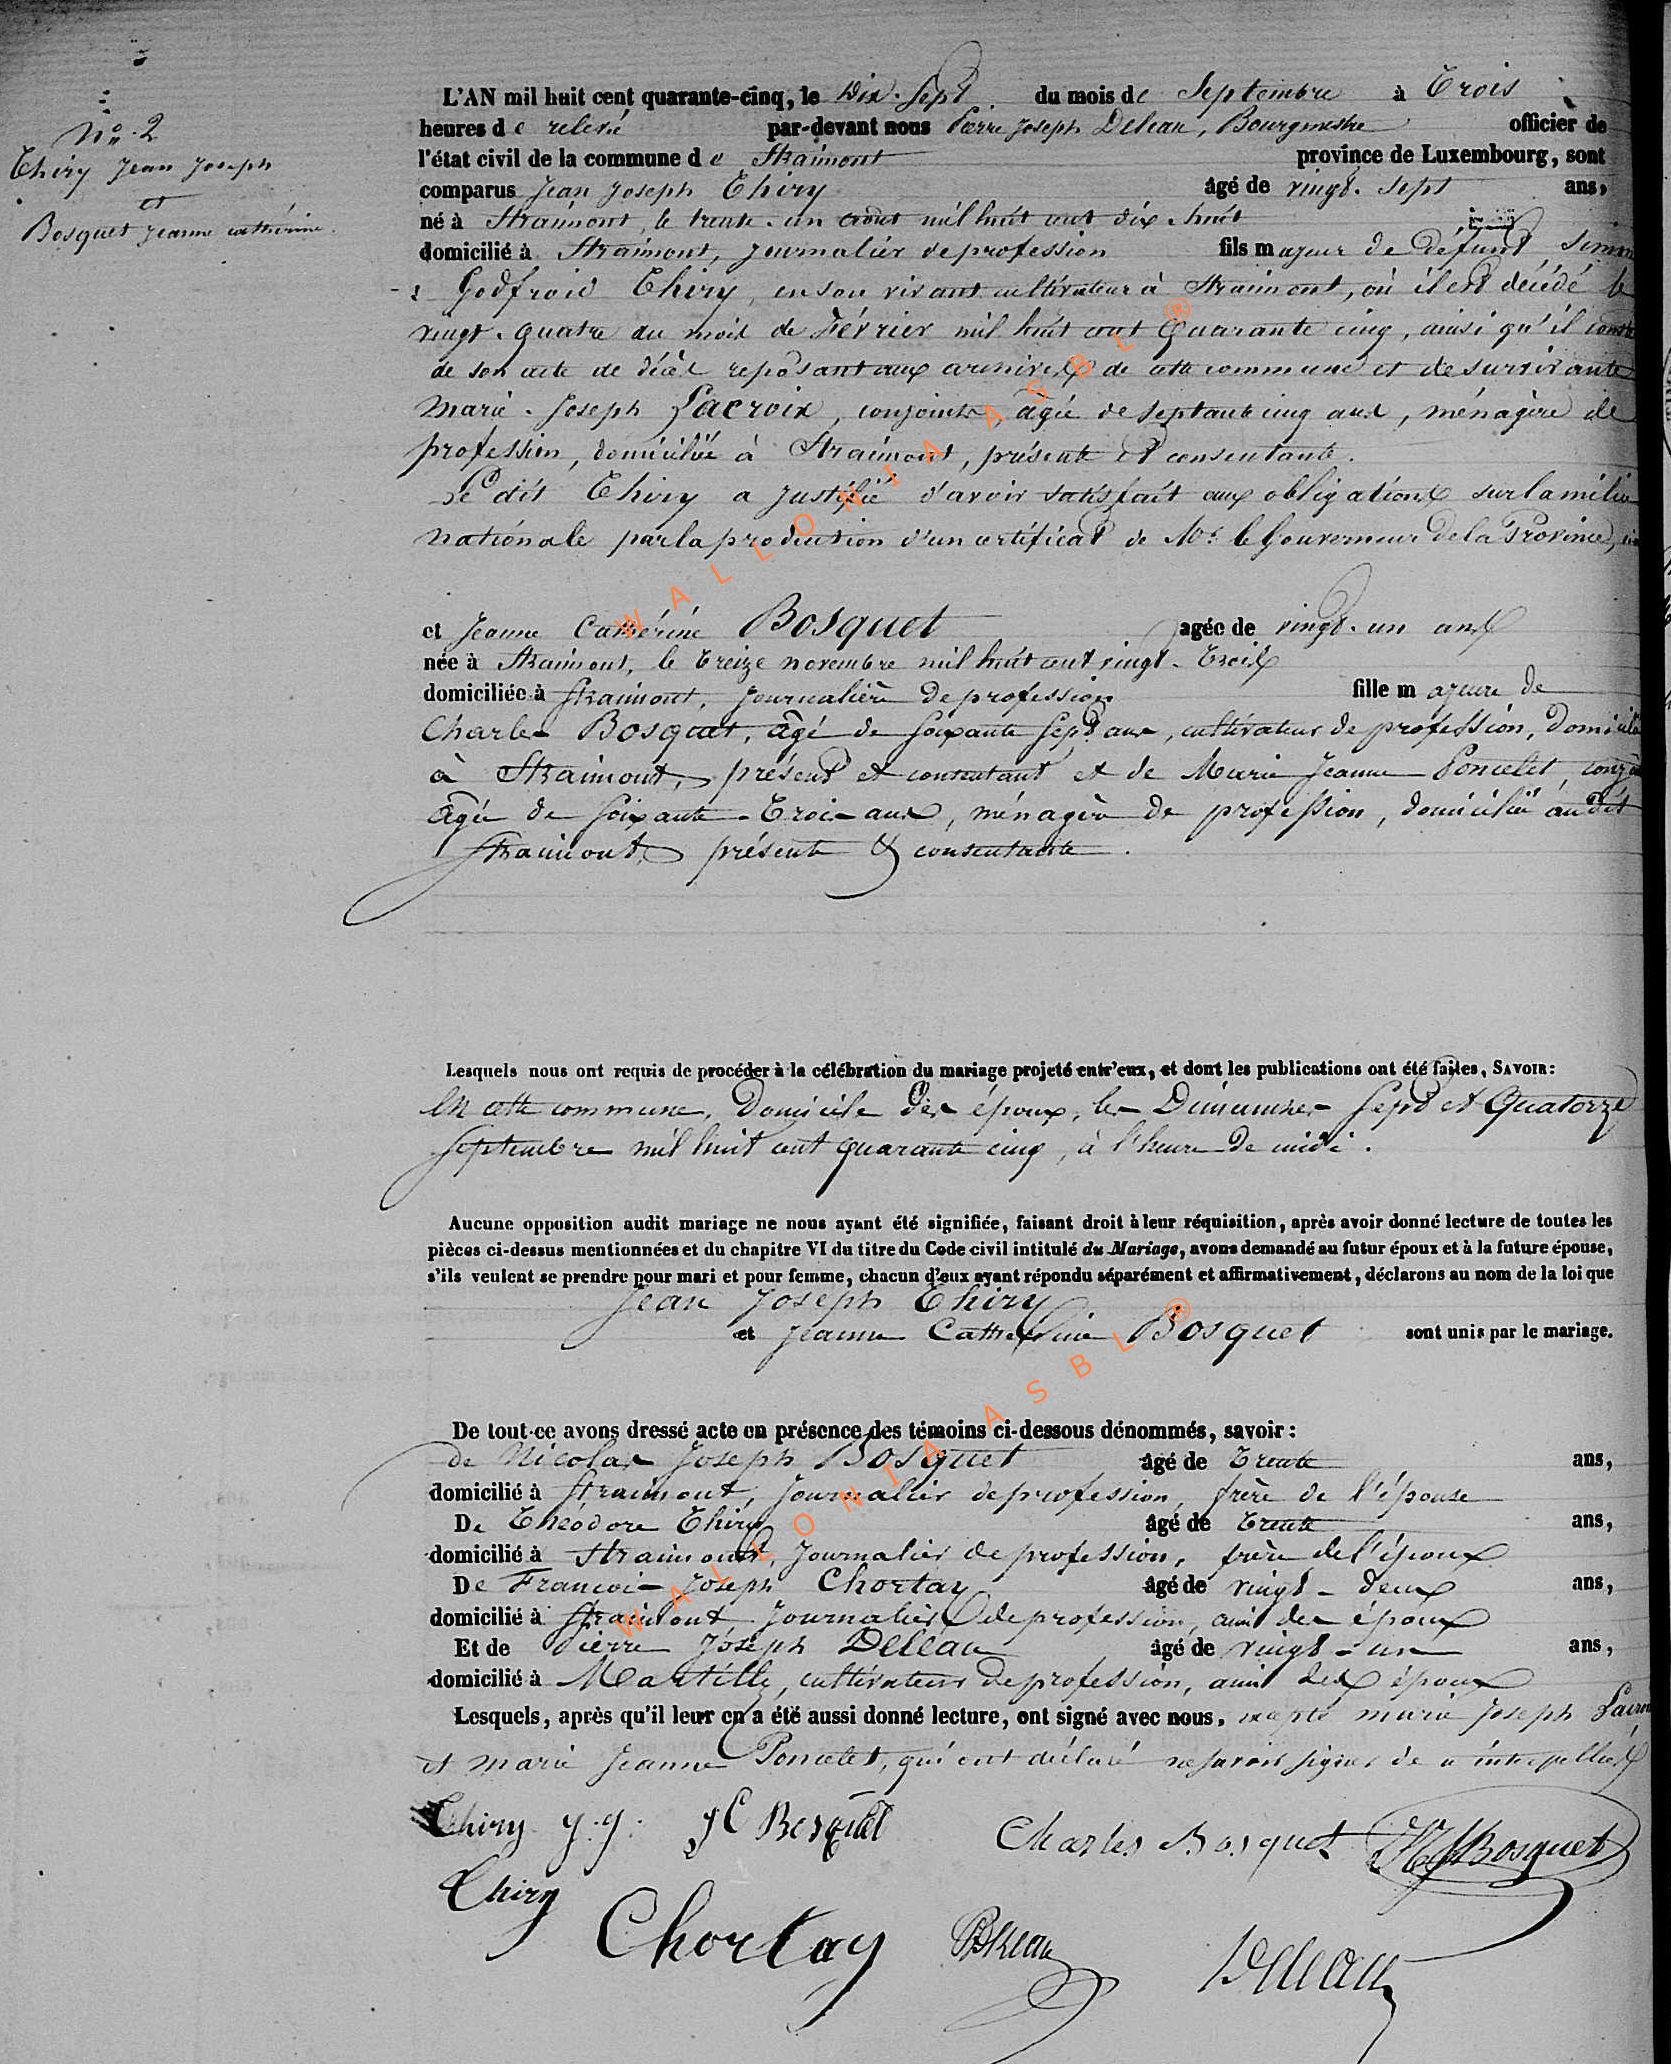 N° 2
Thiry Jean Joseph
et
Bosquet Jeanne cathérine.
L'AN mil huit cent quarante-cinq, le Dix-Sept du mois de Septembre à Trois
heures de relevé par-devant nous Pierre Joseph Deleau, Bourgmestre officier de
l'état civil de la commune de Straimont province de Luxembourg, sont
comparus Jean Joseph Thiry âgé de vingt-sept ans,
né à Straimont, le trente-un aout mil huit cent dix-huit
domicilié à Straimont, journalier de profession fils majeur de défunt
Godfroid Thiry, en son vivant cultivateur à Straimont, où il est décédé le
vingt-quatre du mois de Février mil huit cent quarante cinq, ainsi qu'il
de son acte de décès reposant aux archives de cette commune et de survivante
Marie-Joseph Lacroix, conjointe, âgée de septante cinq ans, ménagère de
profession, domiciliée à Straimont, présente et consentante.
Le dit Thiry a justifié d'avoir satisfait aux obligations sur la milice
nationale par la production d'un certificat de Mr. le Gouverneur de la Province,
et Jeanne Cathérine Bosquet agée de vingt-un ans
née à Straimont, le treize novembre mil huit cent vingt-trois
domiciliée à Straimont, journalière de profession fille majeure de
Charles Bosquet, âgé de soixante sept ans, cultivateur de profession,
à Straimont, présent et consentant et de Marie Jeanne Poncelet,
âgée de soixante-trois ans, ménagère de profession, domiciliée au dit
Straimont, présente & consentante.
Lesquels nous ont requis de procéder à la célébration du mariage projeté entr'eux, et dont les publications ont été faites, SAVOIR:
En cette commune, domicile des époux, les Dimanches sept et Quatorze
septembre mil huit cent quarante cinq, à l'heure de midi.
Aucune opposition audit mariage ne nous ayant été signifiée, faisant droit à leur réquisition, après avoir donné lecture de toutes les
pièces ci-dessus mentionnées et du chapitre VI du titre du Code civil intitulé du Mariage, avons demandé au futur époux et à la future épouse,
s'ils veulent se prendre pour mari et pour femme, chacun d'eux ayant répondu séparément et affirmativement, déclarons au nom de la loi que
Jean Joseph Thiry
et Jeanne Catherine Bosquet sont unis par le mariage.
De tout ce avons dressé acte en présence des témoins ci-dessous dénommés, savoir:
de Nicolas Joseph Bosquet âgé de Trente ans,
domicilié à Straimont, journalier de profession, frère de l'épouse
De Théodore Thiry âgé de Trente ans,
domicilié à Straimont, journalier de profession, frère de l'époux
De Francois Joseph Chortay âgé de vingt-deux ans,
domicilié à Straimont journalier de profession, ami des époux
Et de Pierre Joseph Deleau âgé de vingt-un ans,
domicilié à Martilly, cultivateur de profession, ami des époux
Lesquels, après qu'il leur en a été aussi donné lecture, ont signé avec nous, excepté marie Joseph Lacroix
et marie Jeanne Poncelet, qui ont déclaré ne savoir signer de ce interpellées
Thiry J.J. J C Bosquet Charles Bosquet NJ Bosquet
Thiry
Chortay PJDeleau Deleau
WALLONIA ASBL ®
WALLONIA ASBL ®